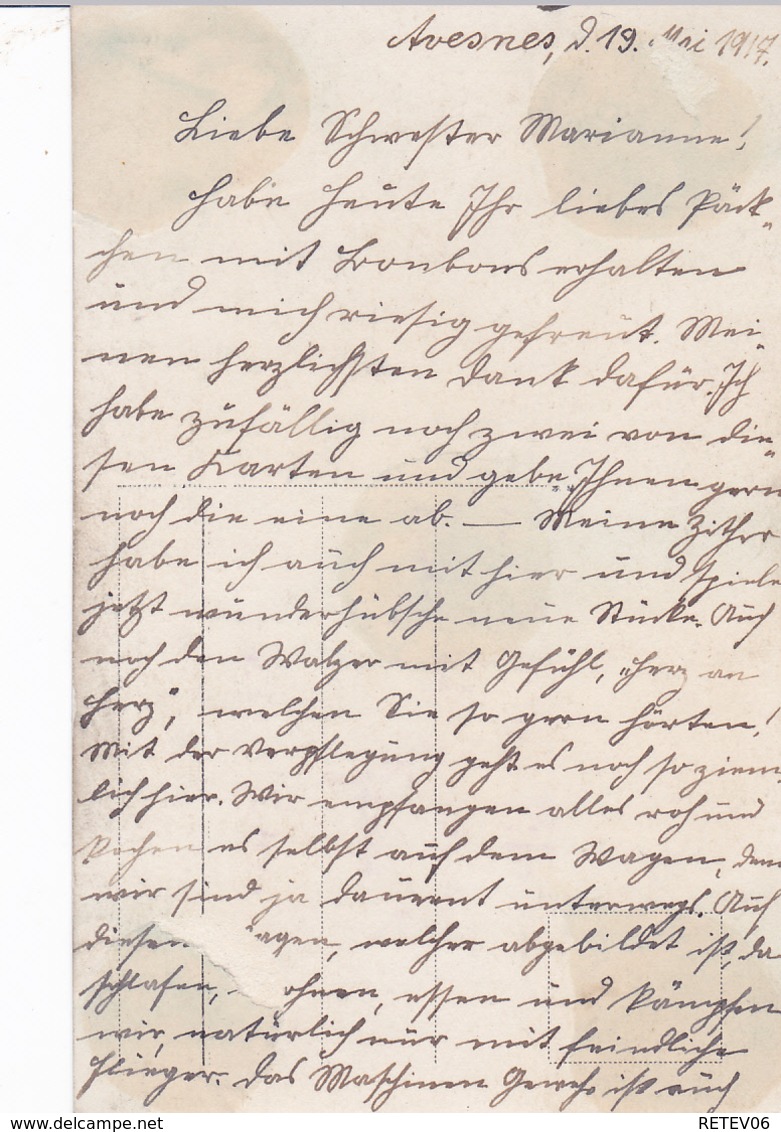 Avesnes, d. 19. Mai 1917.
Liebe Schwester Marianne!
Habe heute Ihr liebes Päck-
chen mit Bonbons erhalten
und mich riesig gefreut. Mei-
nen herzlichsten Dank dafür. Ich
habe zufällig noch zwei von die-
sen Karten und gebe Ihnen gern
noch die eine ab. — Meine Zither
habe ich auch mit hier und spiele
jetzt wunderhübsche neue Stücke. Auch
noch den Walzer mit Gefühl, „Herz an
Herz", welchen Sie so gern hörten!
Mit der Verpflegung geht es noch so ziem-
lich hier. Wir empfangen alles roh und
kochen es selbst auf dem Wagen, denn
wir sind ja dauernd unterwegs. Auf
diesem agen, welcher abgebildet ist, da
schlafen, ohnen, essen und kämpfen
wir, natürlich nur mit feindliche
Flieger. Das Maschinen Gewehr ist auch
RETEV06